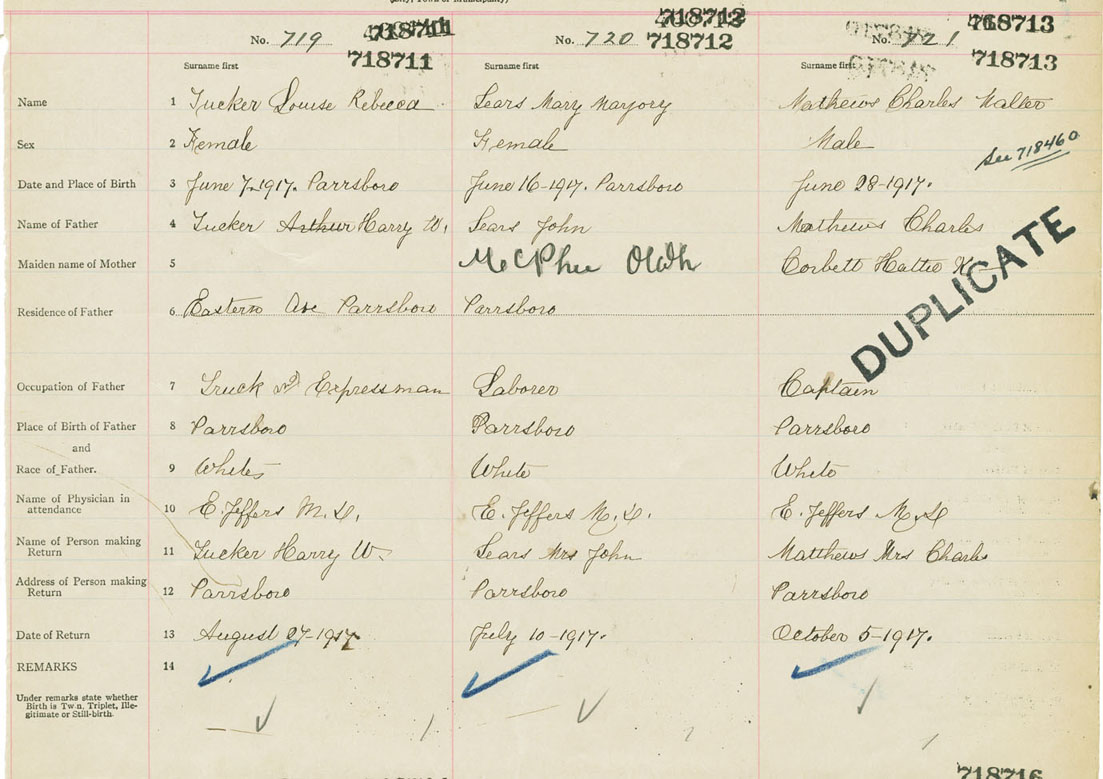 (City, Town or Municipality)
No. 719 718711
718711
No. 720 718712
718712
No. 721 718713
718713
Surname first Surname first Surname first
Name 1 Tucker Louise Rebecca Sears Mary Marjory Mathews Charles Walter
Sex 2 Female Female Male
See 718460
Date and Place of Birth 3 June 7-1917. Parrsboro June 16-1917. Parrsboro June 28-1917.
Name of Father 4 Tucker Arthur Harry W. Sears John Mathews Charles
Maiden name of Mother 5 McPhee Corbett Hattie K
DUPLICATE
Residence of Father 6 Eastern Ave Parrsboro Parrsboro
Occupation of Father 7 Truck Expressman Laborer Captain
Place of Birth of Father 8 Parrsboro Parrsboro Parrsboro
and
Race of Father. 9 White White White
Name of Physician in
attendance 10 E. Jeffers M.D. E. Jeffers M.D. E. Jeffers M.D
Name of Person making
Return 11 Tucker Harry W. Sears Mrs John Matthews Mrs Charles
Address of Person making
Return 12 Parrsboro Parrsboro Parrsboro
Date of Return 13 August 27-1917. July 10-1917. October 5-1917.
REMARKS 14
Under remarks state whether
Birth is Twin, Triplet, Ille-
gitimate or Still-birth.
718716